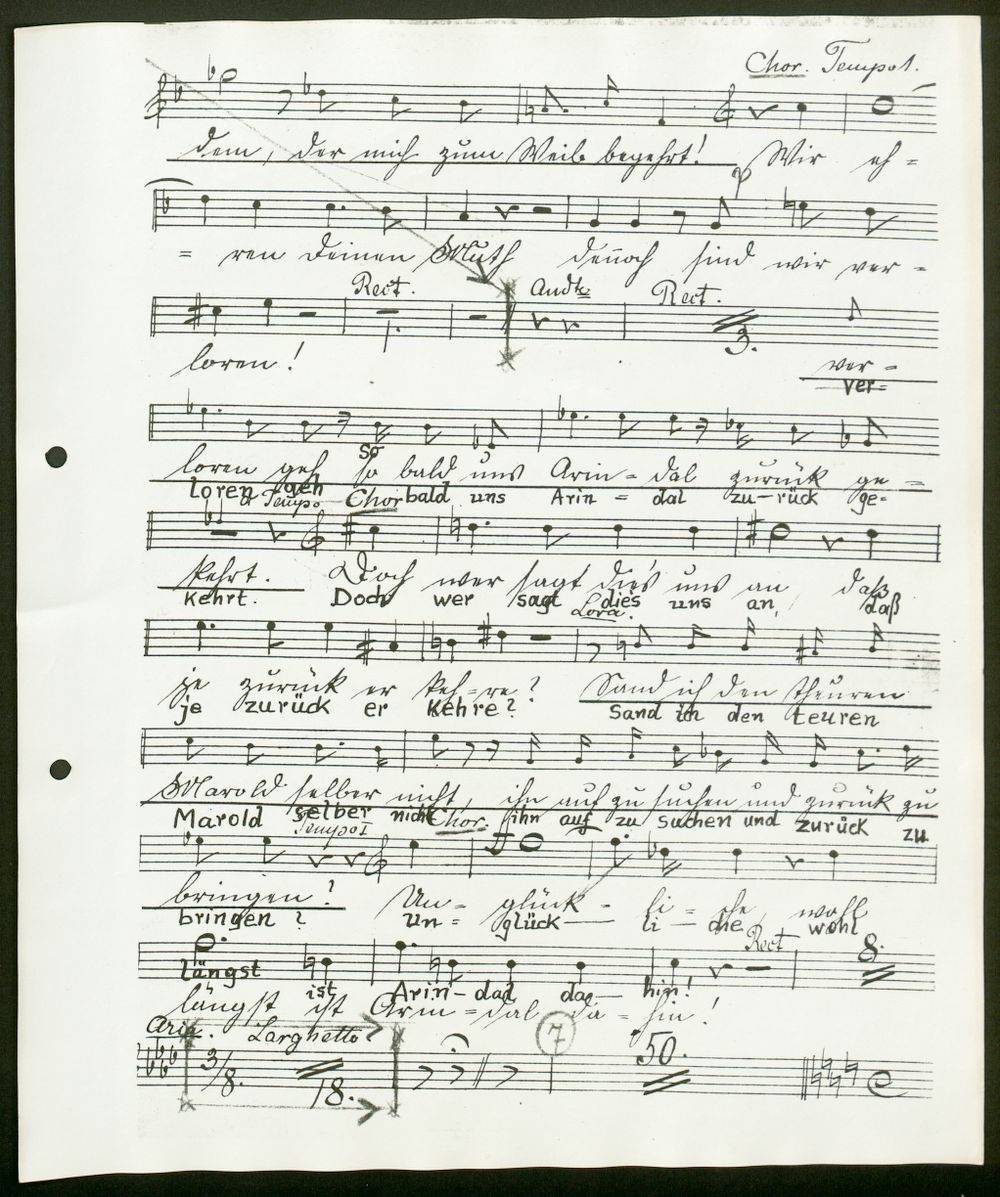 Chor. Tempo 1.
dem, der mich zum Weib begehrt! Wir eh =
= ren deinen Muth denoch sind wir ver =
Rect. Andte Rect.
1. 3.
loren! ver =
ver =
loren geh so bald uns Arin = dal zurück ge =
So
loren geh bald uns Arin = dal zu-rück ge =
a Tempo Chor
kehrt. Doch wer sagt dies uns an, daß
kehrt. Doch wer sagt dies uns an, daß
Lora.
je zurück er keh = re? Sand ich den theuren
je zurück er kehre? Sand ich den teuren
Marold selber nicht, ihn auf zu suchen und zurück zu
Marold selber nicht ihn auf zu suchen und zurück zu
Tempo 1 Chor.
bringen? Un = glück = li = che, wohl
bringen? un = glück — li — che wohl
Rect 8.
längst ist Arin-dal da — hin!
längst ist Arin = dal da = hin!
Aria. Larghetto 7 50.
3/8. 18.